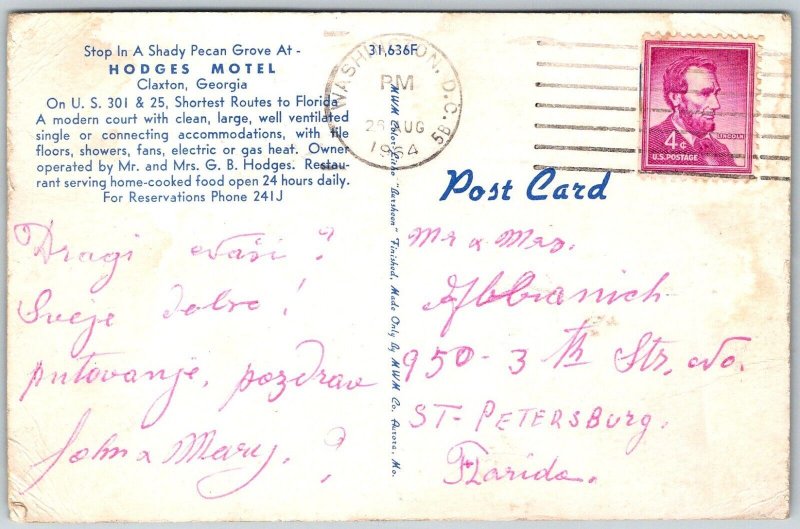 Stop In A Shady Pecan Grove At -
HODGES MOTEL
Claxton, Georgia
On U. S. 301 & 25, Shortest Routes to Florida
A modern court with clean, large, well ventilated
single or connecting accommodations, with tile
floors, showers, fans, electric or gas heat. Owner
operated by Mr. and Mrs. G. B. Hodges. Restau-
rant serving home-cooked food open 24 hours daily.
For Reservations Phone 241J
31,636F
WASHINGTON, D.C. 5B
PM
AUG
1964
4¢
LINCOLN
U.S. POSTAGE
Post Card
MWM Color-Litho "Dursheen" Finished, Made Only By MWM Co. Aurora, Mo.
Dragi
Sveje dobro!
putovanje, pozdrav
John & Mary.
Mr & Mrs.
950-3th Str. No.
ST-PETERSBURG.
Florida.